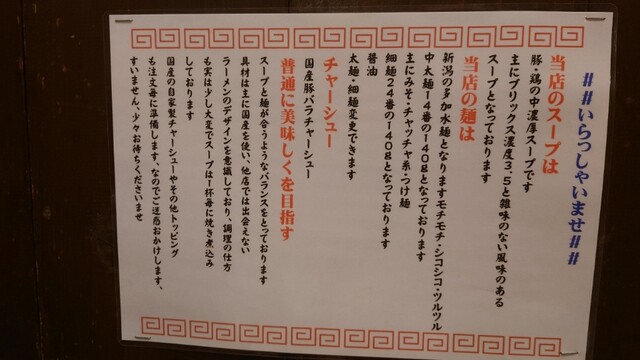 ##いらっしゃいませ##
当店のスープは
豚・鶏の中濃厚スープです
主にブリックス濃度3.5と雑味のない風味のある
スープとなっております
当店の麺は
新潟の多加水麺となりますモチモチ・シコシコ・ツルツル
中太麺14番の140gとなっております
主にみそ・チャッチャ系・つけ麺
細麺24番の140gとなっております
醤油
太麺・細麺変更できます
チャーシュー
国産豚バラチャーシュー
普通に美味しくを目指す
スープと麺が合うようなバランスをとっております
具材は主に国産を使い、他店では出会えない
ラーメンのデザインを意識しており、調理の仕方
も実は少し大変でスープは1杯毎に焼き煮込み
しております
国産の自家製チャーシューやその他トッピング
も注文毎に準備します、なのでご迷惑おかけします、
すいません、少々お待ちくださいませ